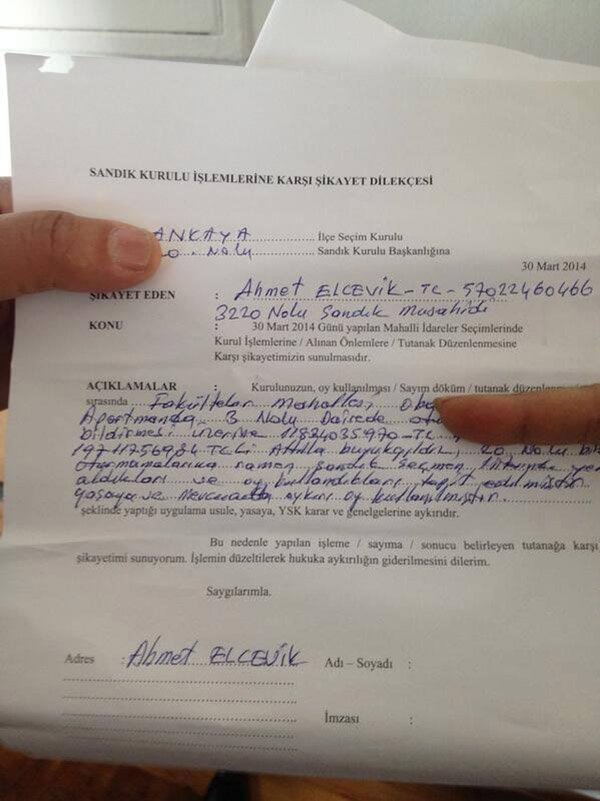 SANDIK KURULU İŞLEMLERİNE KARŞI ŞİKAYET DİLEKÇESİ
ANKAYA İlçe Seçim Kurulu
Nolu Sandık Kurulu Başkanlığına
30 Mart 2014
ŞİKAYET EDEN : Ahmet ELCEVİK - TC - 57022460466
3220 Nolu Sandık Müşahidi
KONU : 30 Mart 2014 Günü yapılan Mahalli İdareler Seçimlerinde
Kurul İşlemlerine / Alınan Önlemlere / Tutanak Düzenlenmesine
Karşı şikayetimizin sunulmasıdır.
AÇIKLAMALAR : Kurulunuzun, oy kullanılması / Sayım döküm / tutanak
sırasında Fakülteler Mahallesi
Apartmanda, 3 Nolu Dairede
bildirmesi üzerine TC
TC Li Atilla 20 Nolu
oturmamalarına rağmen sandık seçmen
aldıkları ve oy kullandıkları tespit edilmiştir.
yasaya ve mevzuata aykırı oy kullanılmıştır.
şeklinde yaptığı uygulama usule, yasaya, YSK karar ve genelgelerine aykırıdır.
Bu nedenle yapılan işleme / sayıma / sonucu belirleyen tutanağa karşı
şikayetimi sunuyorum. İşlemin düzeltilerek hukuka aykırılığın giderilmesini dilerim.
Saygılarımla.
Adres : Ahmet ELCEVİK Adı – Soyadı :
İmzası :